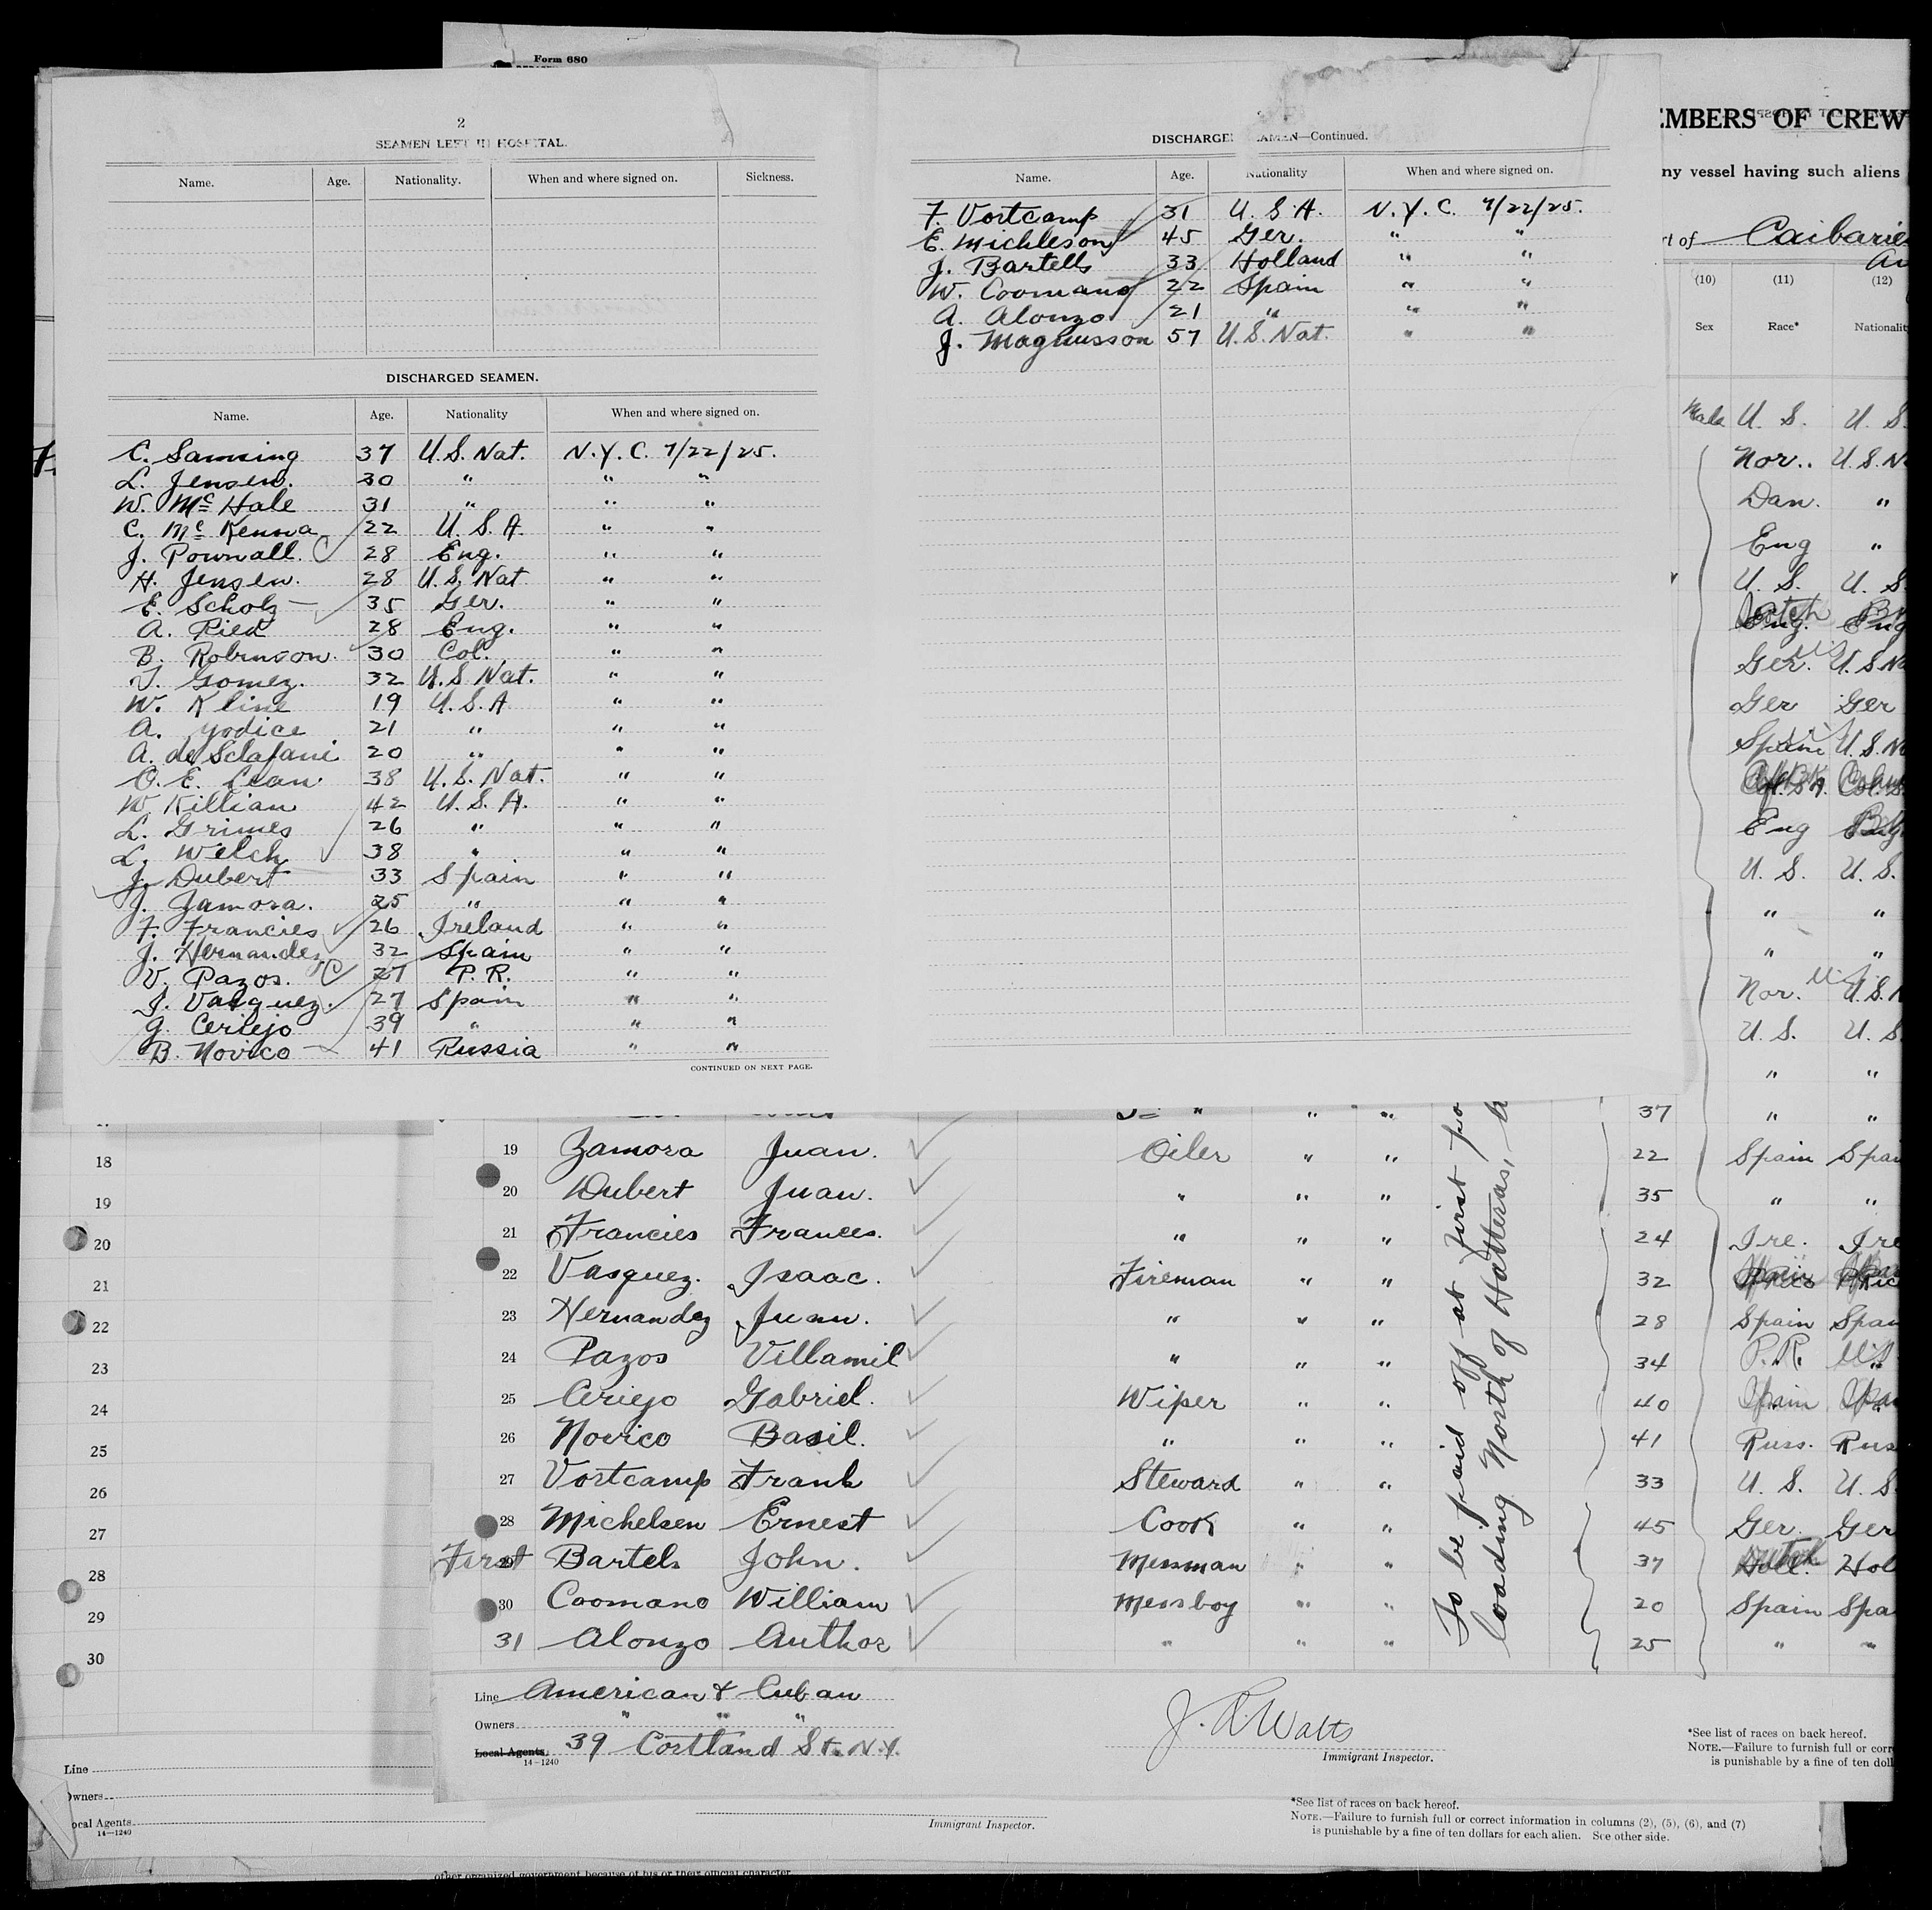 Form 680
2
SEAMEN LEFT IN HOSPITAL.
Name. Age. Nationality. When and where signed on. Sickness.
DISCHARGED SEAMEN.
Name. Age. Nationality When and where signed on.
C. Samsing 37 U.S. Nat. N.Y.C. 7/22/25.
L. Jensen. 30 " " "
W. Mc Hale 31 " " "
C. Mc Kenna 22 U.S.A. " "
J. Pownall. 28 Eng. " "
H. Jensen. 28 U.S. Nat " "
E. Scholz 35 Ger. " "
A. Ried 28 Eng. " "
B. Robinson. 30 Col. " "
T. Gomez. 32 U.S Nat. " "
W. Kline 19 U.S.A " "
A. Yodice 21 " " "
A. de Sclafani 20 " " "
O. E. Lean 38 U.S. Nat. " "
W. Killian 42 U.S.A. " "
L. Grimes 26 " " "
L. Welch 38 " " "
J. Dubert 33 Spain " "
J. Zamora. 25 " " "
F. Francies 26 Ireland " "
J. Hernandez 32 Spain " "
V. Pazos. 27 P.R. " "
I. Vasquez. 27 Spain " "
G. Ceriejo 39 " " "
B. Novico 41 Russia " "
CONTINUED ON NEXT PAGE.
DISCHARGED SEAMEN—Continued.
Name. Age. Nationality When and where signed on.
F. Vortcamp 31 U.S.A. N.Y.C. 7/22/25.
E. Michleson 45 Ger. " "
J. Bartells 33 Holland " "
W. Coomans 22 Spain " "
A. Alonzo 21 " " "
J. Magnusson 57 U.S. Nat. " "
EMBERS OF CREW
ny vessel having such aliens
rt of Caibarie
(10) (11) (12)
Sex Race* Nationalit
Male U.S. U.S.
Nor.. U.S.N
Dan. "
Eng "
U.S. U.S.
Eng. Eng
Ger. U.S Na
Ger Ger
Spain U.S. N
Eng
U.S. U.S.
" "
" "
Nor. U.S.
U.S. U.S
" "
37 " "
18
19
20
21
22
23
24
25
26
27
28
29
30
19 Zamora Juan. Oiler " " 22 Spain Spai
20 Dubert Juan. " " " 35 " "
21 Francies Frances. " " " 24 Ire. Ire
22 Vasquez. Isaac. Fireman " " 32
23 Hernandez Juan. " " " 28 Spain Span
24 Pazos Villamil " " " 34 P.R.
25 Ceriejo Gabriel. Wiper " " 40 Spain Spa
26 Novico Basil. " " " 41 Russ. Rus
27 Vortcamp Frank Steward " " 33 U.S. U.S
28 Michelsen Ernest Cook " " 45 Ger. Ger
First 29 Bartels John. Messman " " 37 Hol
30 Coomano William Messboy " " 20 Spain Spa
31 Alonzo Author " " " 25 " "
To be paid off at first po
loading North of Hatteras,
Line American & Cuban
Owners " " "
Local Agents 39 Cortland St. N.Y.
14—1240
J. R Watts
Immigrant Inspector.
*See list of races on back hereof.
NOTE.—Failure to furnish full or corre
is punishable by a fine of ten doll
Line
Owners
ocal Agents
14—1240
Immigrant Inspector.
*See list of races on back hereof.
NOTE.—Failure to furnish full or correct information in columns (2), (5), (6), and (7)
is punishable by a fine of ten dollars for each alien. See other side.
other organized government because of his or their official character